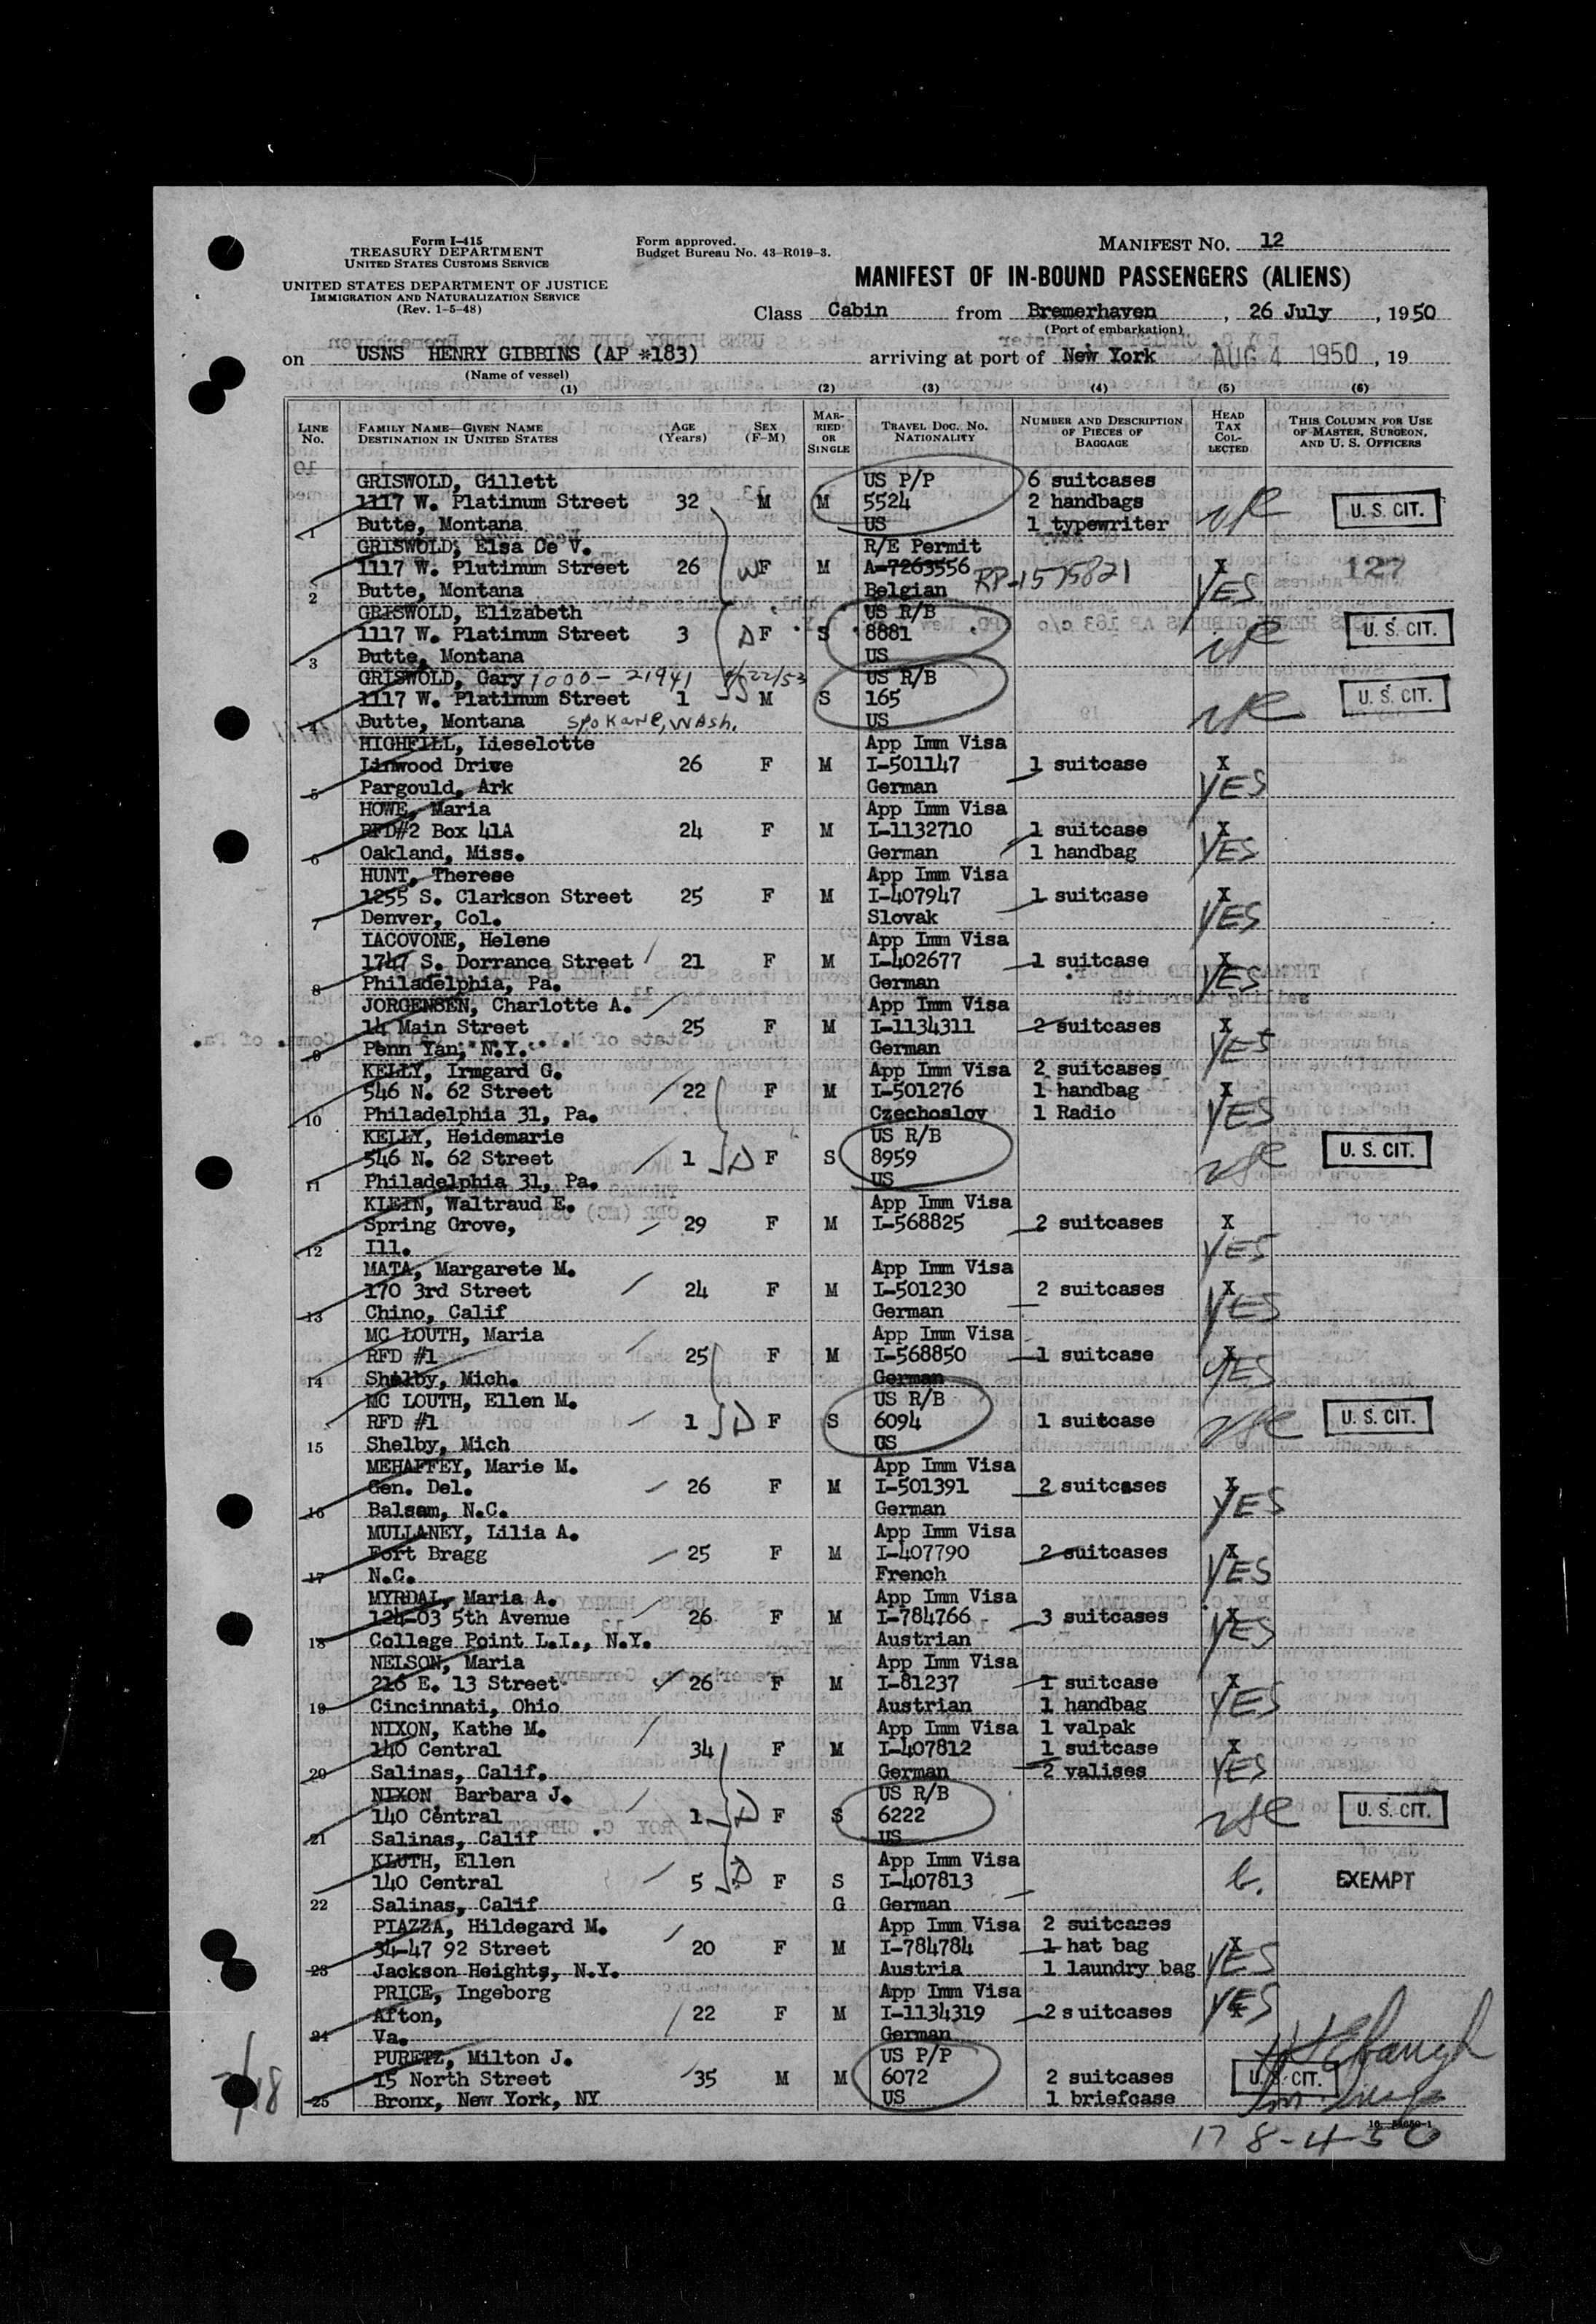 Form I-415
TREASURY DEPARTMENT
UNITED STATES CUSTOMS SERVICE
UNITED STATES DEPARTMENT OF JUSTICE
IMMIGRATION AND NATURALIZATION SERVICE
(Rev. 1-5-48)
Form approved.
Budget Bureau No. 43-R019-3.
MANIFEST NO. 12
MANIFEST OF IN-BOUND PASSENGERS (ALIENS)
Class Cabin from Bremerhaven, 26 July, 1950
(Port of embarkation)
on USNS HENRY GIBBINS (AP *183) arriving at port of New York AUG 4 1950, 19
(Name of vessel)
(1) (2) (3) (4) (5) (6)
LINE No. FAMILY NAME—GIVEN NAME DESTINATION IN UNITED STATES AGE (Years) SEX (F-M) MARRIED OR SINGLE TRAVEL DOC. NO. NATIONALITY NUMBER AND DESCRIPTION OF PIECES OF BAGGAGE HEAD TAX COLLECTED THIS COLUMN FOR USE OF MASTER, SURGEON, AND U. S. OFFICERS
GRISWOLD, Gillett US P/P 6 suitcases
1117 W. Platinum Street 32 M M 5524 2 handbags U. S. CIT.
1 Butte, Montana US 1 typewriter
GRISWOLD, Elsa De V. R/E Permit
1117 W. Plutinum Street 26 W F M A-7263556 RP-1575821 X 127
2 Butte, Montana Belgian YES
GRISWOLD, Elizabeth US R/B
1117 W. Platinum Street 3 D F S 8881 U. S. CIT.
3 Butte, Montana US
GRISWOLD, Gary 1000-21941 /22/53 US R/B
1117 W. Platinum Street 1 S M S 165 U. S. CIT.
4 Butte, Montana Spokane, Wash. US
HIGHFILL, Lieselotte App Imm Visa
Linwood Drive 26 F M I-501147 1 suitcase X
5 Pargould, Ark German YES
HOWE, Maria App Imm Visa
RFD#2 Box 41A 24 F M I-1132710 1 suitcase X
6 Oakland, Miss. German 1 handbag YES
HUNT, Therese App Imm Visa
1255 S. Clarkson Street 25 F M I-407947 1 suitcase X
7 Denver, Col. Slovak YES
IACOVONE, Helene App Imm Visa
1747 S. Dorrance Street 21 F M I-402677 1 suitcase X
8 Philadelphia, Pa. German YES
JORGENSEN, Charlotte A. App Imm Visa
14 Main Street 25 F M I-1134311 2 suitcases X
9 Penn Yan, N.Y. German YES
KELLY, Irmgard G. App Imm Visa 2 suitcases
546 N. 62 Street 22 F M I-501276 1 handbag X
10 Philadelphia 31, Pa. Czechoslov 1 Radio YES
KELLY, Heidemarie US R/B
546 N. 62 Street 1 D F S 8959 U. S. CIT.
11 Philadelphia 31, Pa. US
KLEIN, Waltraud E. App Imm Visa
Spring Grove, 29 F M I-568825 2 suitcases X
12 Ill. YES
MATA, Margarete M. App Imm Visa
170 3rd Street 24 F M I-501230 2 suitcases X
13 Chino, Calif German YES
MC LOUTH, Maria App Imm Visa
RFD #1 25 F M I-568850 1 suitcase X
14 Shelby, Mich. German YES
MC LOUTH, Ellen M. US R/B
RFD #1 1 D F S 6094 1 suitcase U. S. CIT.
15 Shelby, Mich US
MEHAFFEY, Marie M. App Imm Visa
Gen. Del. 26 F M I-501391 2 suitcases X
16 Balsam, N.C. German YES
MULLANEY, Lilia A. App Imm Visa
Fort Bragg 25 F M I-407790 2 suitcases X
17 N.C. French YES
MYRDAL, Maria A. App Imm Visa
124-03 5th Avenue 26 F M I-784766 3 suitcases X
18 College Point L.I., N.Y. Austrian YES
NELSON, Maria App Imm Visa
216 E. 13 Street 26 F M I-81237 1 suitcase X
19 Cincinnati, Ohio Austrian 1 handbag YES
NIXON, Kathe M. App Imm Visa 1 valpak
140 Central 34 F M I-407812 1 suitcase X
20 Salinas, Calif. German 2 valises YES
NIXON, Barbara J. US R/B
140 Central 1 D F S 6222 U. S. CIT.
21 Salinas, Calif US
KLUTH, Ellen App Imm Visa
140 Central 5 D F S I-407813 EXEMPT
22 Salinas, Calif G German
PIAZZA, Hildegard M. App Imm Visa 2 suitcases
34-47 92 Street 20 F M I-784784 1 hat bag X
23 Jackson Heights, N.Y. Austria 1 laundry bag YES
PRICE, Ingeborg App Imm Visa YES
Afton, 22 F M I-1134319 2 suitcases X
24 Va. German
PURETZ, Milton J. US P/P
15 North Street 35 M M 6072 2 suitcases U. S. CIT.
25 Bronx, New York, NY US 1 briefcase
17 8-4-50